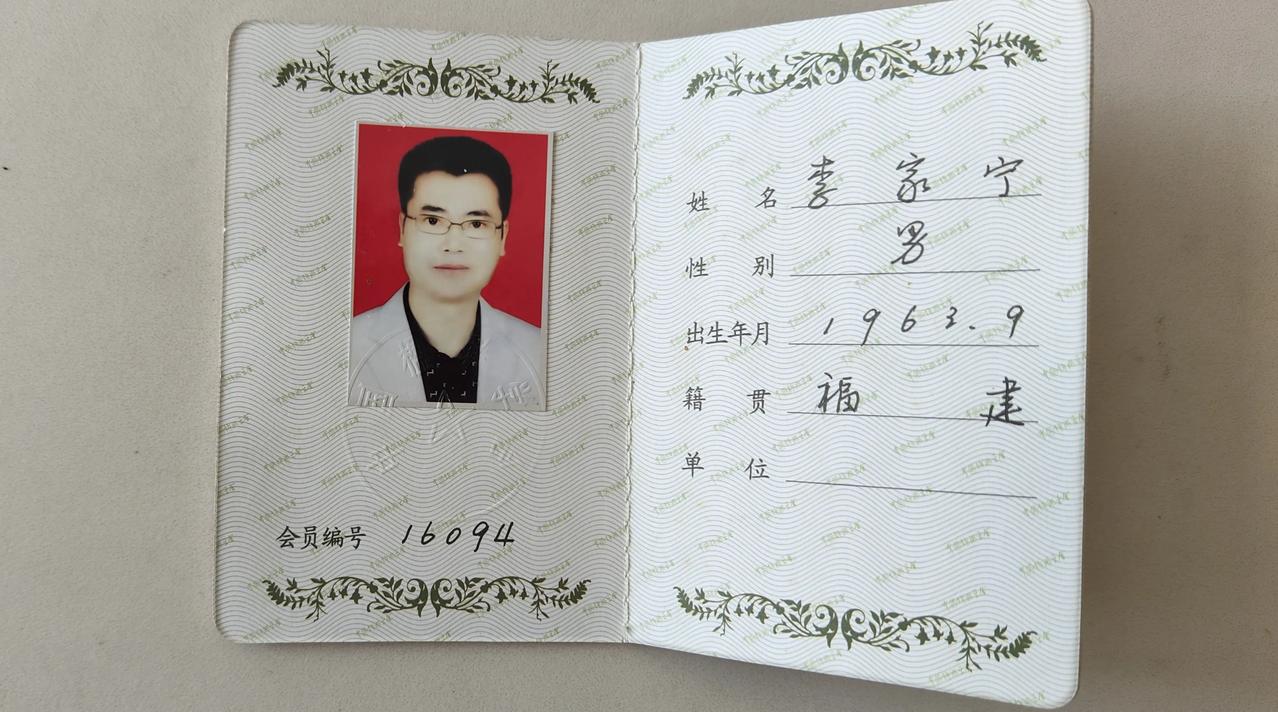 会员编号 16094
姓名 李家宁
性别 男
出生年月 1963.9
籍贯 福建
单位